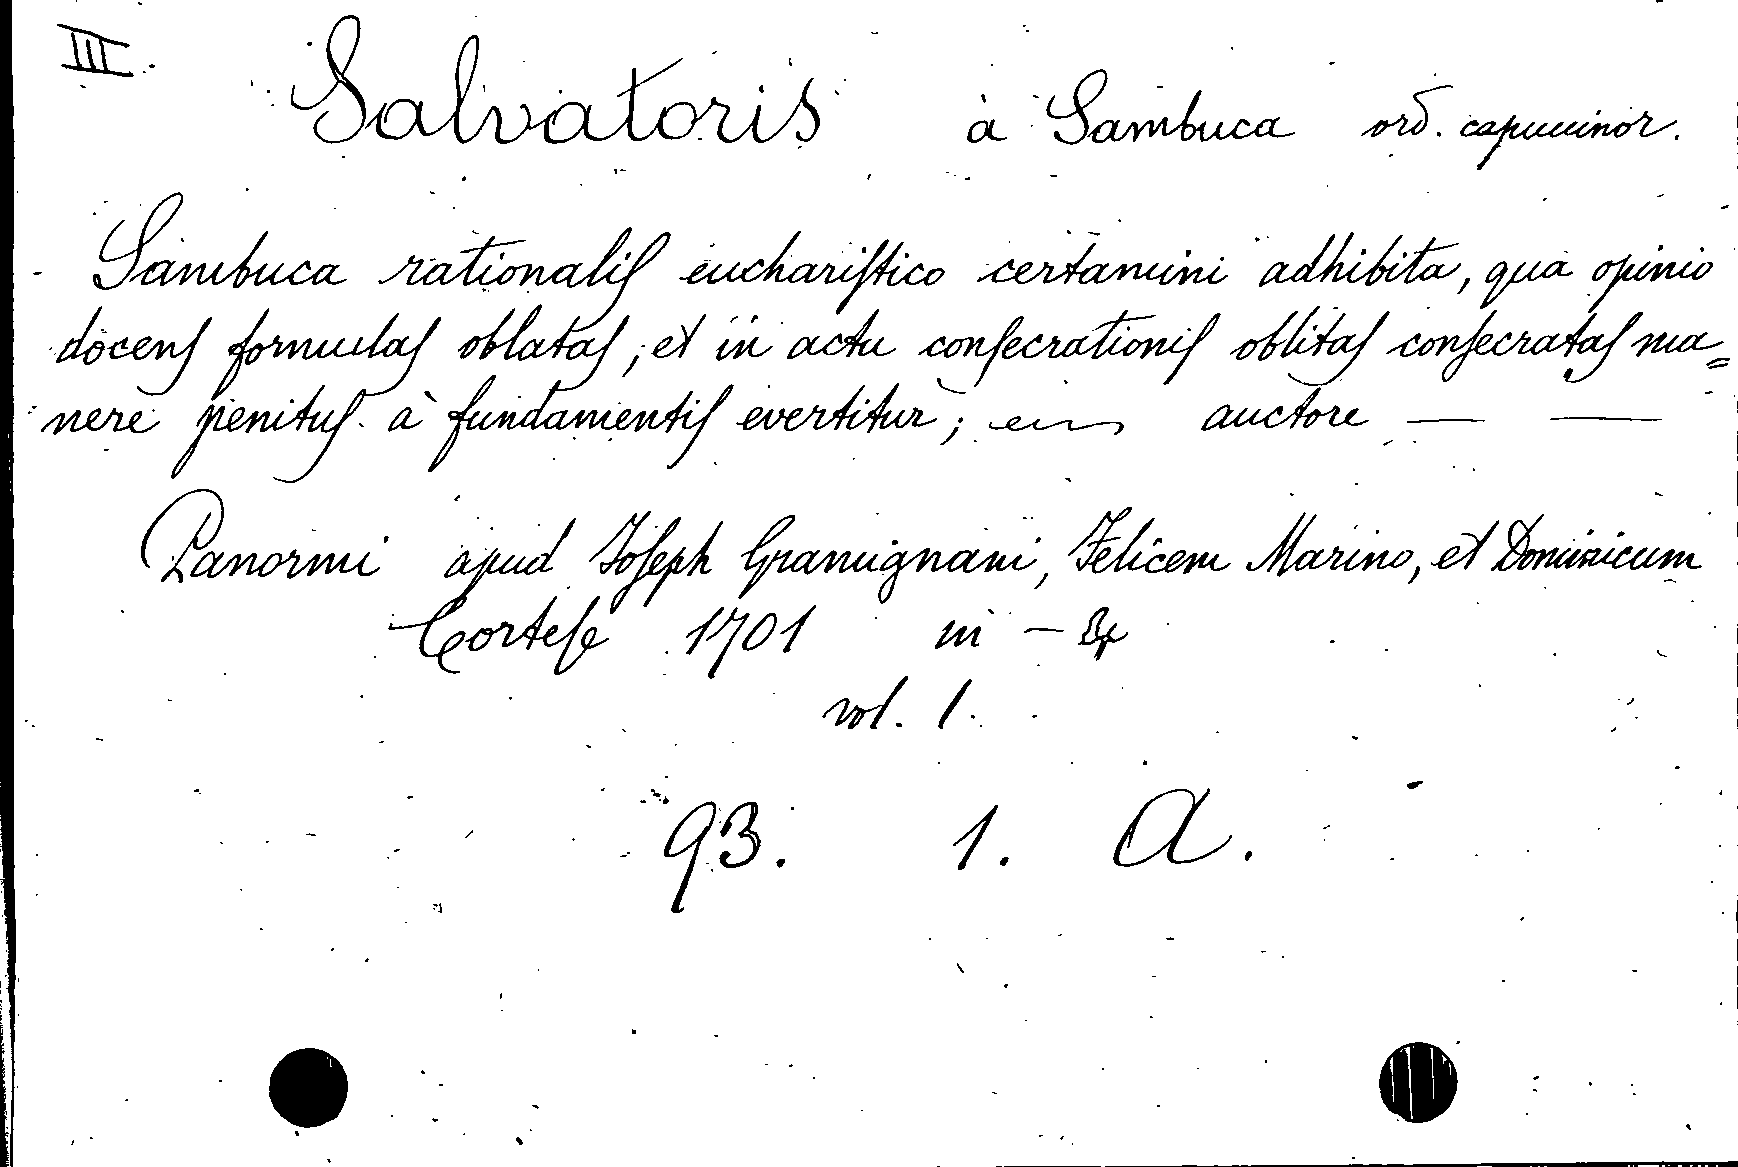 III.
Salvatoris à Sambuca ord. capuccinor.
Sambuca rationalis eucharistico certamini adhibita, qua opinio
docens formulas oblatas, et in actu consecrationis oblitas consecratas ma=
nere penitus à fundamentis evertitur; auctore — —
Panormi apud Joseph Gramignani, Felicem Marino, et Dominicum
Cortese 1701 in -
vol. 1.
93. 1. A.